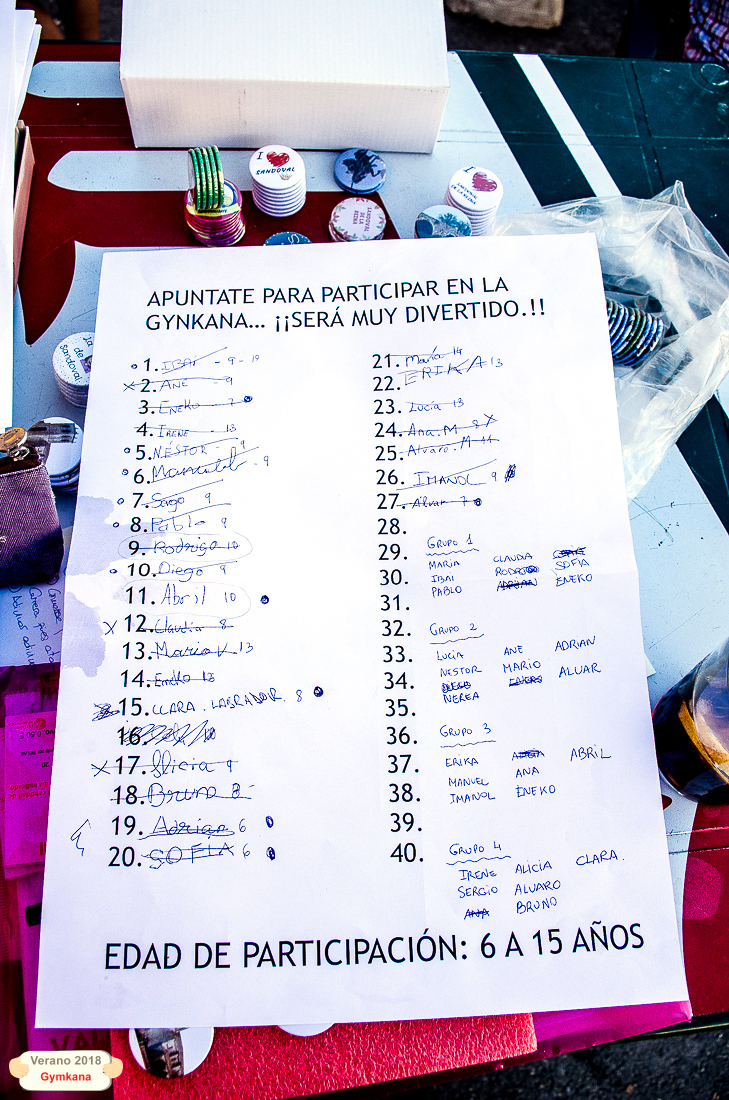 I SANDOVAL
SANDOVAL DE LA REINA
SANDOVAL DE LA REINA
La de Sandoval
APUNTATE PARA PARTICIPAR EN LA
GYNKANA... ¡¡SERÁ MUY DIVERTIDO.!!
1. IBAI - 9 - 10
2. ANE - 9
3. ENEKO - 7
4. IRENE - 13
5. NÉSTOR 9
6. Manuel - 9
7. Sago 9
8. Pablo 9
9. Rodrigo 10
10. Diego 9
11. Abril 10
12. Claudia 8
13. Mario V. 13
14. Eneko 13
15. CLARA. LABRADOR. 8
16.
17. Alicia 9
18. Bruno 8
19. Adrian 6
20. SOFÍA 6
21. María 14
22. ERIKA 13
23. Lucía 13
24. Ana. M 8
25. Alvaro. M 11
26. IMANOL 9
27. Alvar 7
28.
29.
30.
31.
32.
33.
34.
35.
36.
37.
38.
39.
40.
GRUPO 1
MARIA CLAUDIA
IBAI RODRIGO SOFIA
PABLO ADRIAN ENEKO
GRUPO 2
LUCIA ANE ADRIAN
NESTOR MARIO ALVAR
NEREA
GRUPO 3
ERIKA ABRIL
MANUEL ANA
IMANOL ENEKO
GRUPO 4
IRENE ALICIA CLARA.
SERGIO ALVARO
ANA BRUNO
EDAD DE PARTICIPACIÓN: 6 A 15 AÑOS
Verano 2018
Gymkana